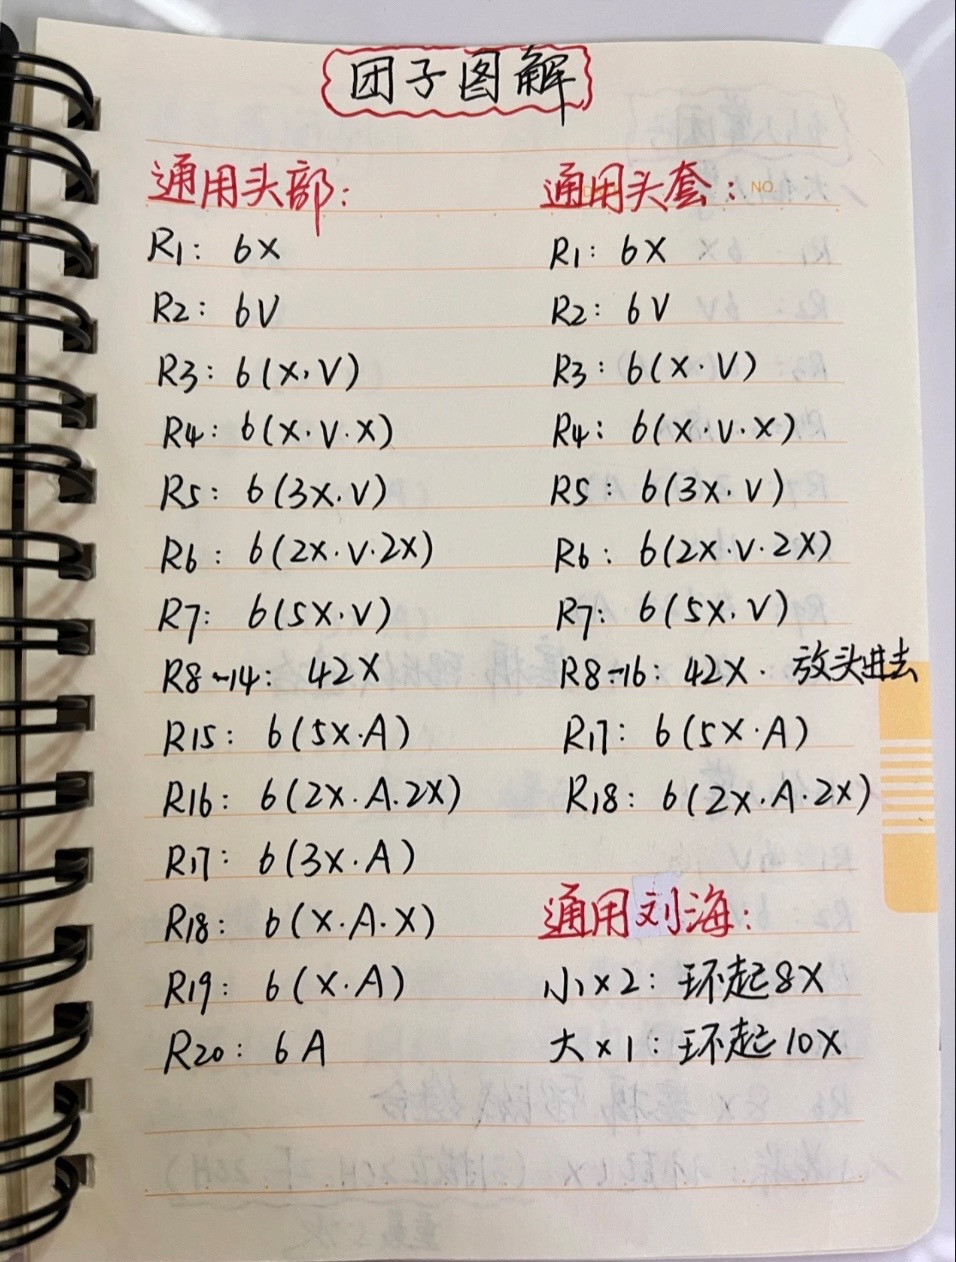 团子图解
通用头部：
R1： 6X
R2： 6V
R3： 6(X·V)
R4： 6(X·V·X)
R5： 6(3X·V)
R6： 6(2X·V·2X)
R7： 6(5X·V)
R8~14： 42X
R15： 6(5X·A)
R16： 6(2X·A·2X)
R17： 6(3X·A)
R18： 6(X·A·X)
R19： 6(X·A)
R20： 6A
通用头套： NO.
R1： 6X
R2： 6V
R3： 6(X·V)
R4： 6(X·V·X)
R5： 6(3X·V)
R6： 6(2X·V·2X)
R7： 6(5X·V)
R8~16： 42X· 放头进去
R17： 6(5X·A)
R18： 6(2X·A·2X)
通用刘海：
小×2： 环起8X
大×1： 环起10X